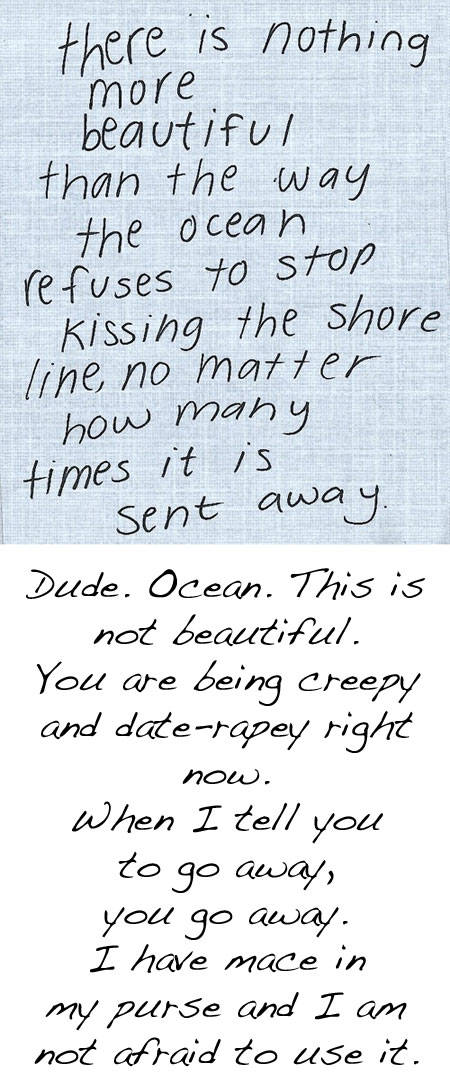 there is nothing
more
beautiful
than the way
the ocean
refuses to stop
kissing the shore
line, no matter
how many
times it is
sent away.
Dude. Ocean. This is
not beautiful.
You are being creepy
and date-rapey right
now.
When I tell you
to go away,
you go away.
I have mace in
my purse and I am
not afraid to use it.